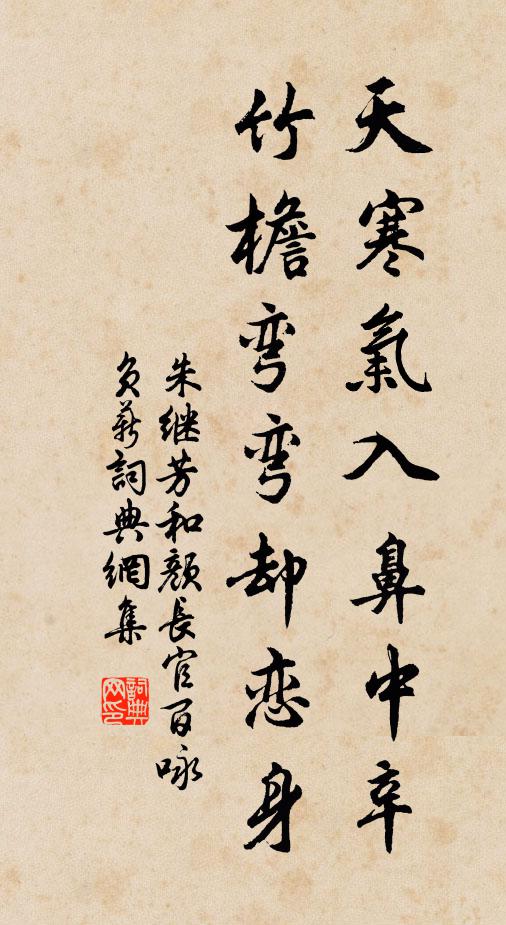 天寒氣入鼻中辛
竹檐弯弯却恋身
朱继芳和颜長官百咏
负薪詞典網集
詞典
网印